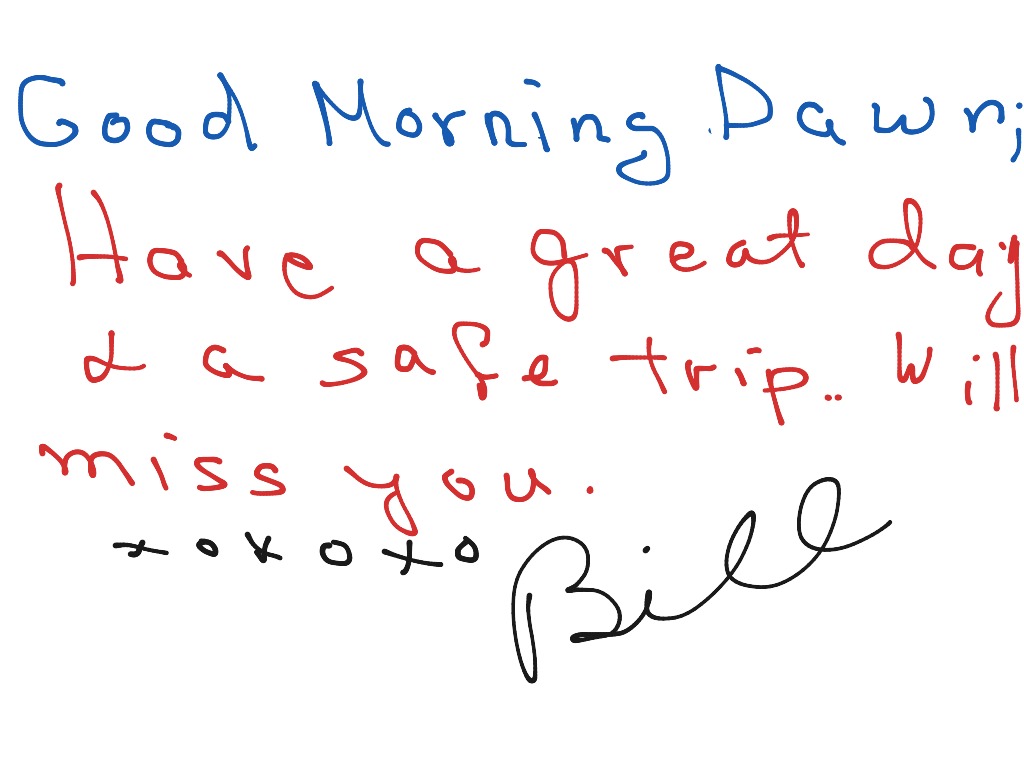 Good Morning Dawn;
Have a great day
& a safe trip.. Will
miss you.
xoxoxo Bill